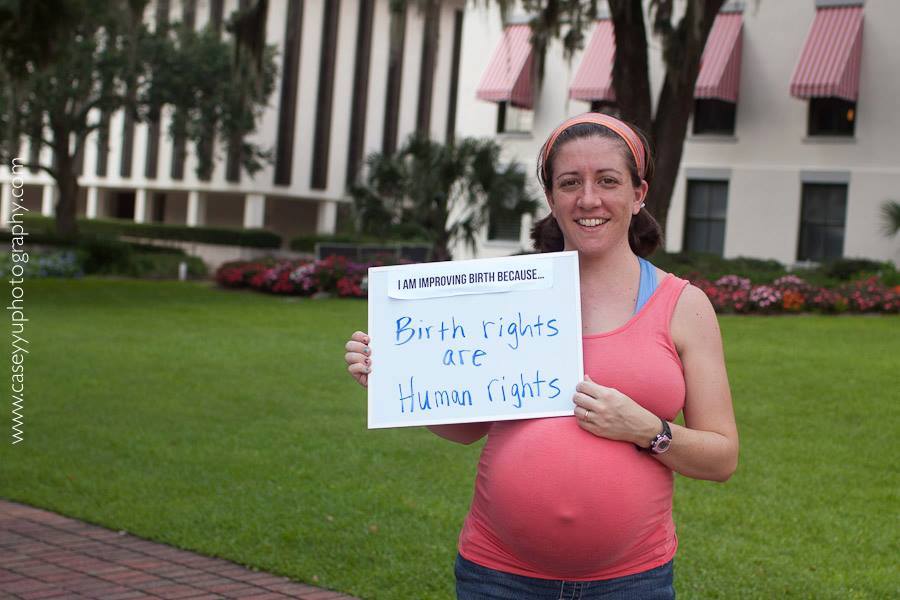 I AM IMPROVING BIRTH BECAUSE...
Birth rights
are
Human rights
www.caseyyuphotography.com